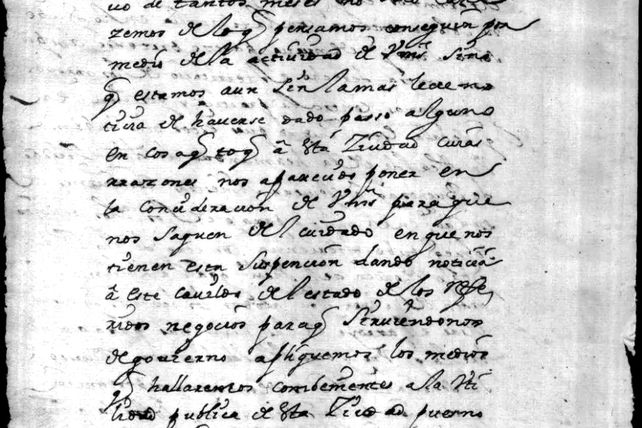 vo de tantos meses no
zemos de lo q̃ pensamos conseguir por
medio de la actividad de Vms. sino
q̃ estamos aun sin la mas leve no
ticia de haverse dado passo alguno
en cosa q̃ toq̃ â esta Ziudad cuias
rrazones nos aparecido poner en
la Concideracion de Vms para que
nos saquen del cuidado en que nos
tienen esta suspencion dando noticia
â este Cavildo del estado de los refe
ridos negocios para q̃ sirviendonos
de govierno apliquemos los medios
q̃ hallaremos combenientes a la uti
lidad publica de esta Ziudad puerno